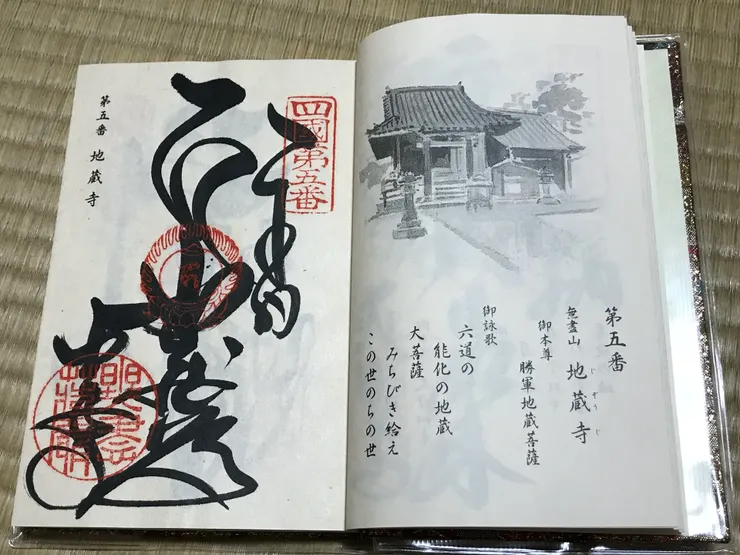 第五番 地蔵寺
四國第五番
奉納
地蔵寺
第五番
無盡山 地蔵寺
じぞうじ
御本尊 勝軍地蔵菩薩
御詠歌
六道の
能化の地蔵
大菩薩
みちびき給え
この世のちの世